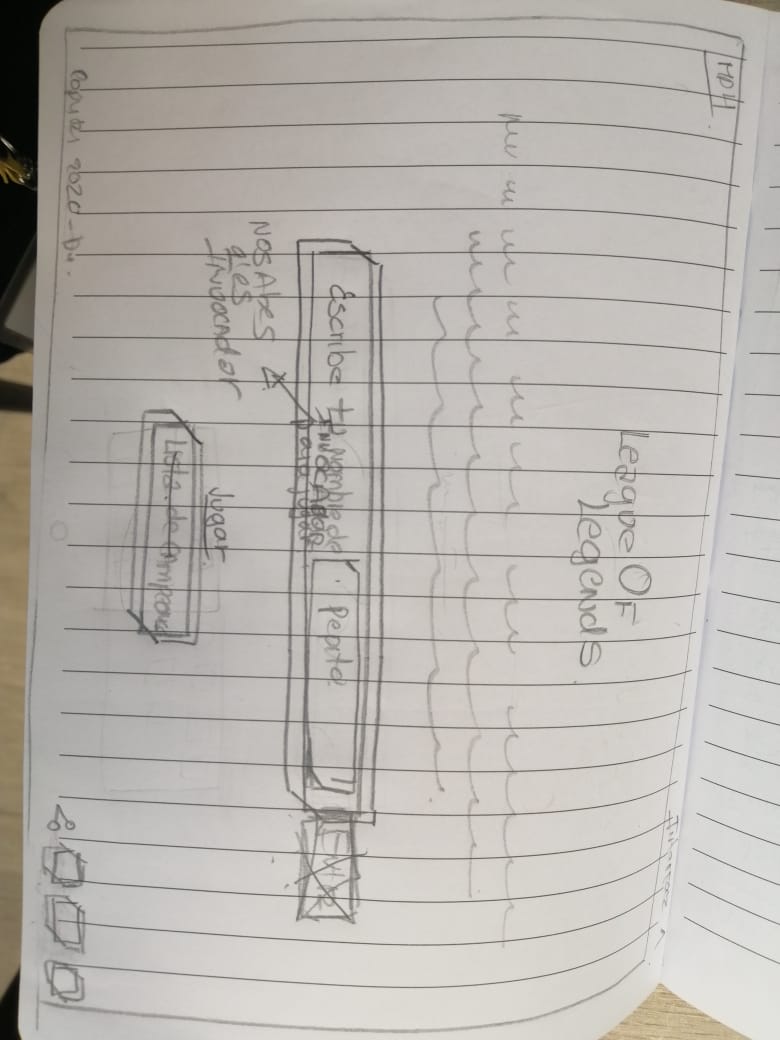 MDH
Interfaz 1
League Of
Legends
Escribe tu Nombre de
Invocador
para jugar
Pepito
No sAbes
q' es
Invocador
Jugar
Lista de campeones
2020